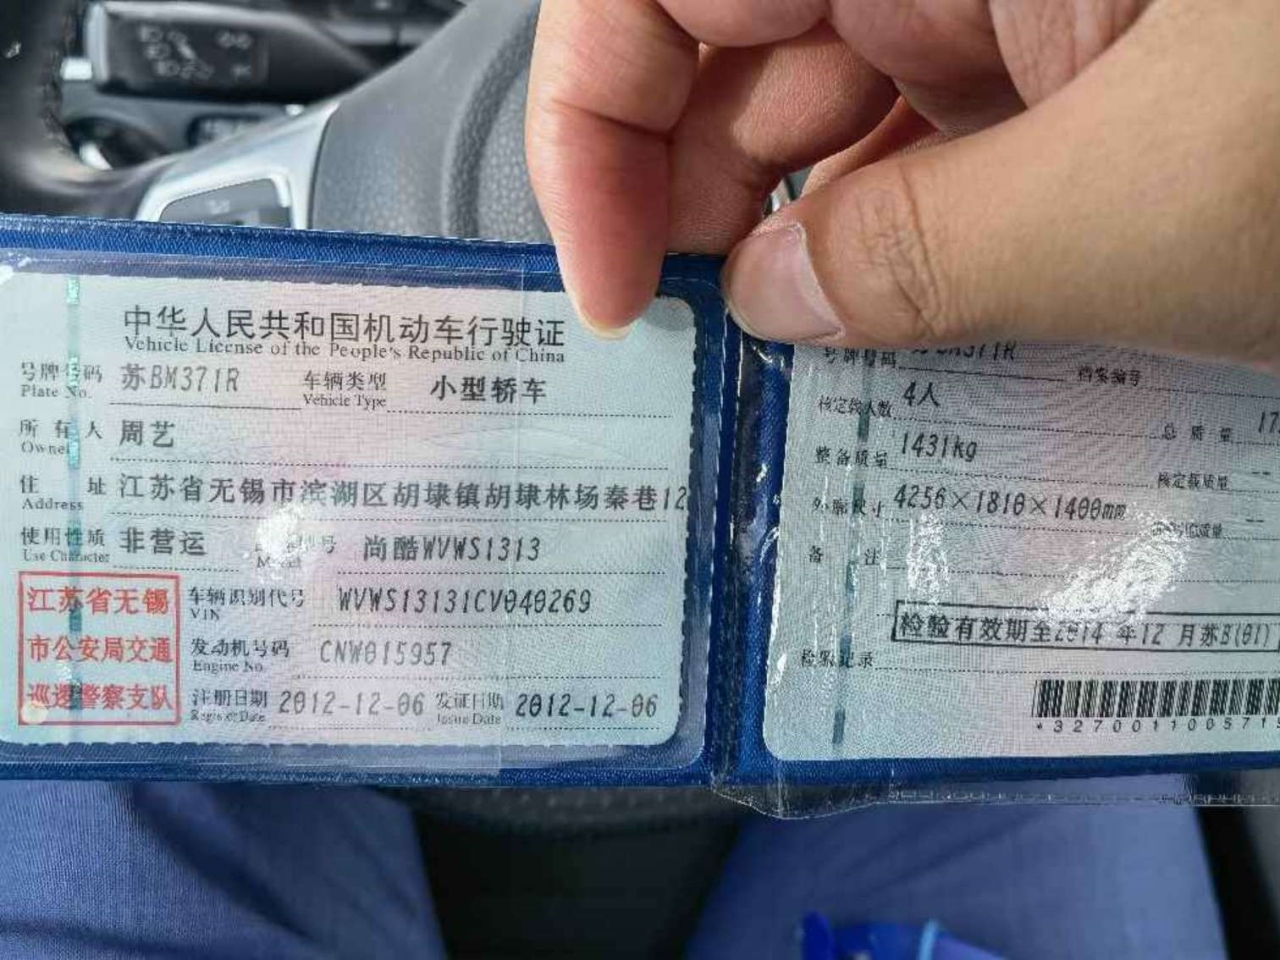 中华人民共和国机动车行驶证
Vehicle License of the People's Republic of China
号牌号码 苏BM371R 车辆类型 小型轿车
Plate No. Vehicle Type
所有人 周艺
Owner
住 址 江苏省无锡市滨湖区胡埭镇胡埭林场秦巷12
Address
使用性质 非营运 号 尚酷WVWS1313
Use Character
江苏省无锡
市公安局交通
巡逻警察支队
车辆识别代号 WVWS13131CV040269
VIN
发动机号码 CNW015957
Engine No.
注册日期 2012-12-06 发证日期 2012-12-06
Register Date Issue Date
号牌号码 档案编号
核定载人数 4人 总质量 17
整备质量 1431kg 核定载质量 --
外廓尺寸 4256×1810×1400mm --
备 注
检验有效期至2014年12月苏B(01)
检验记录
*327001100571